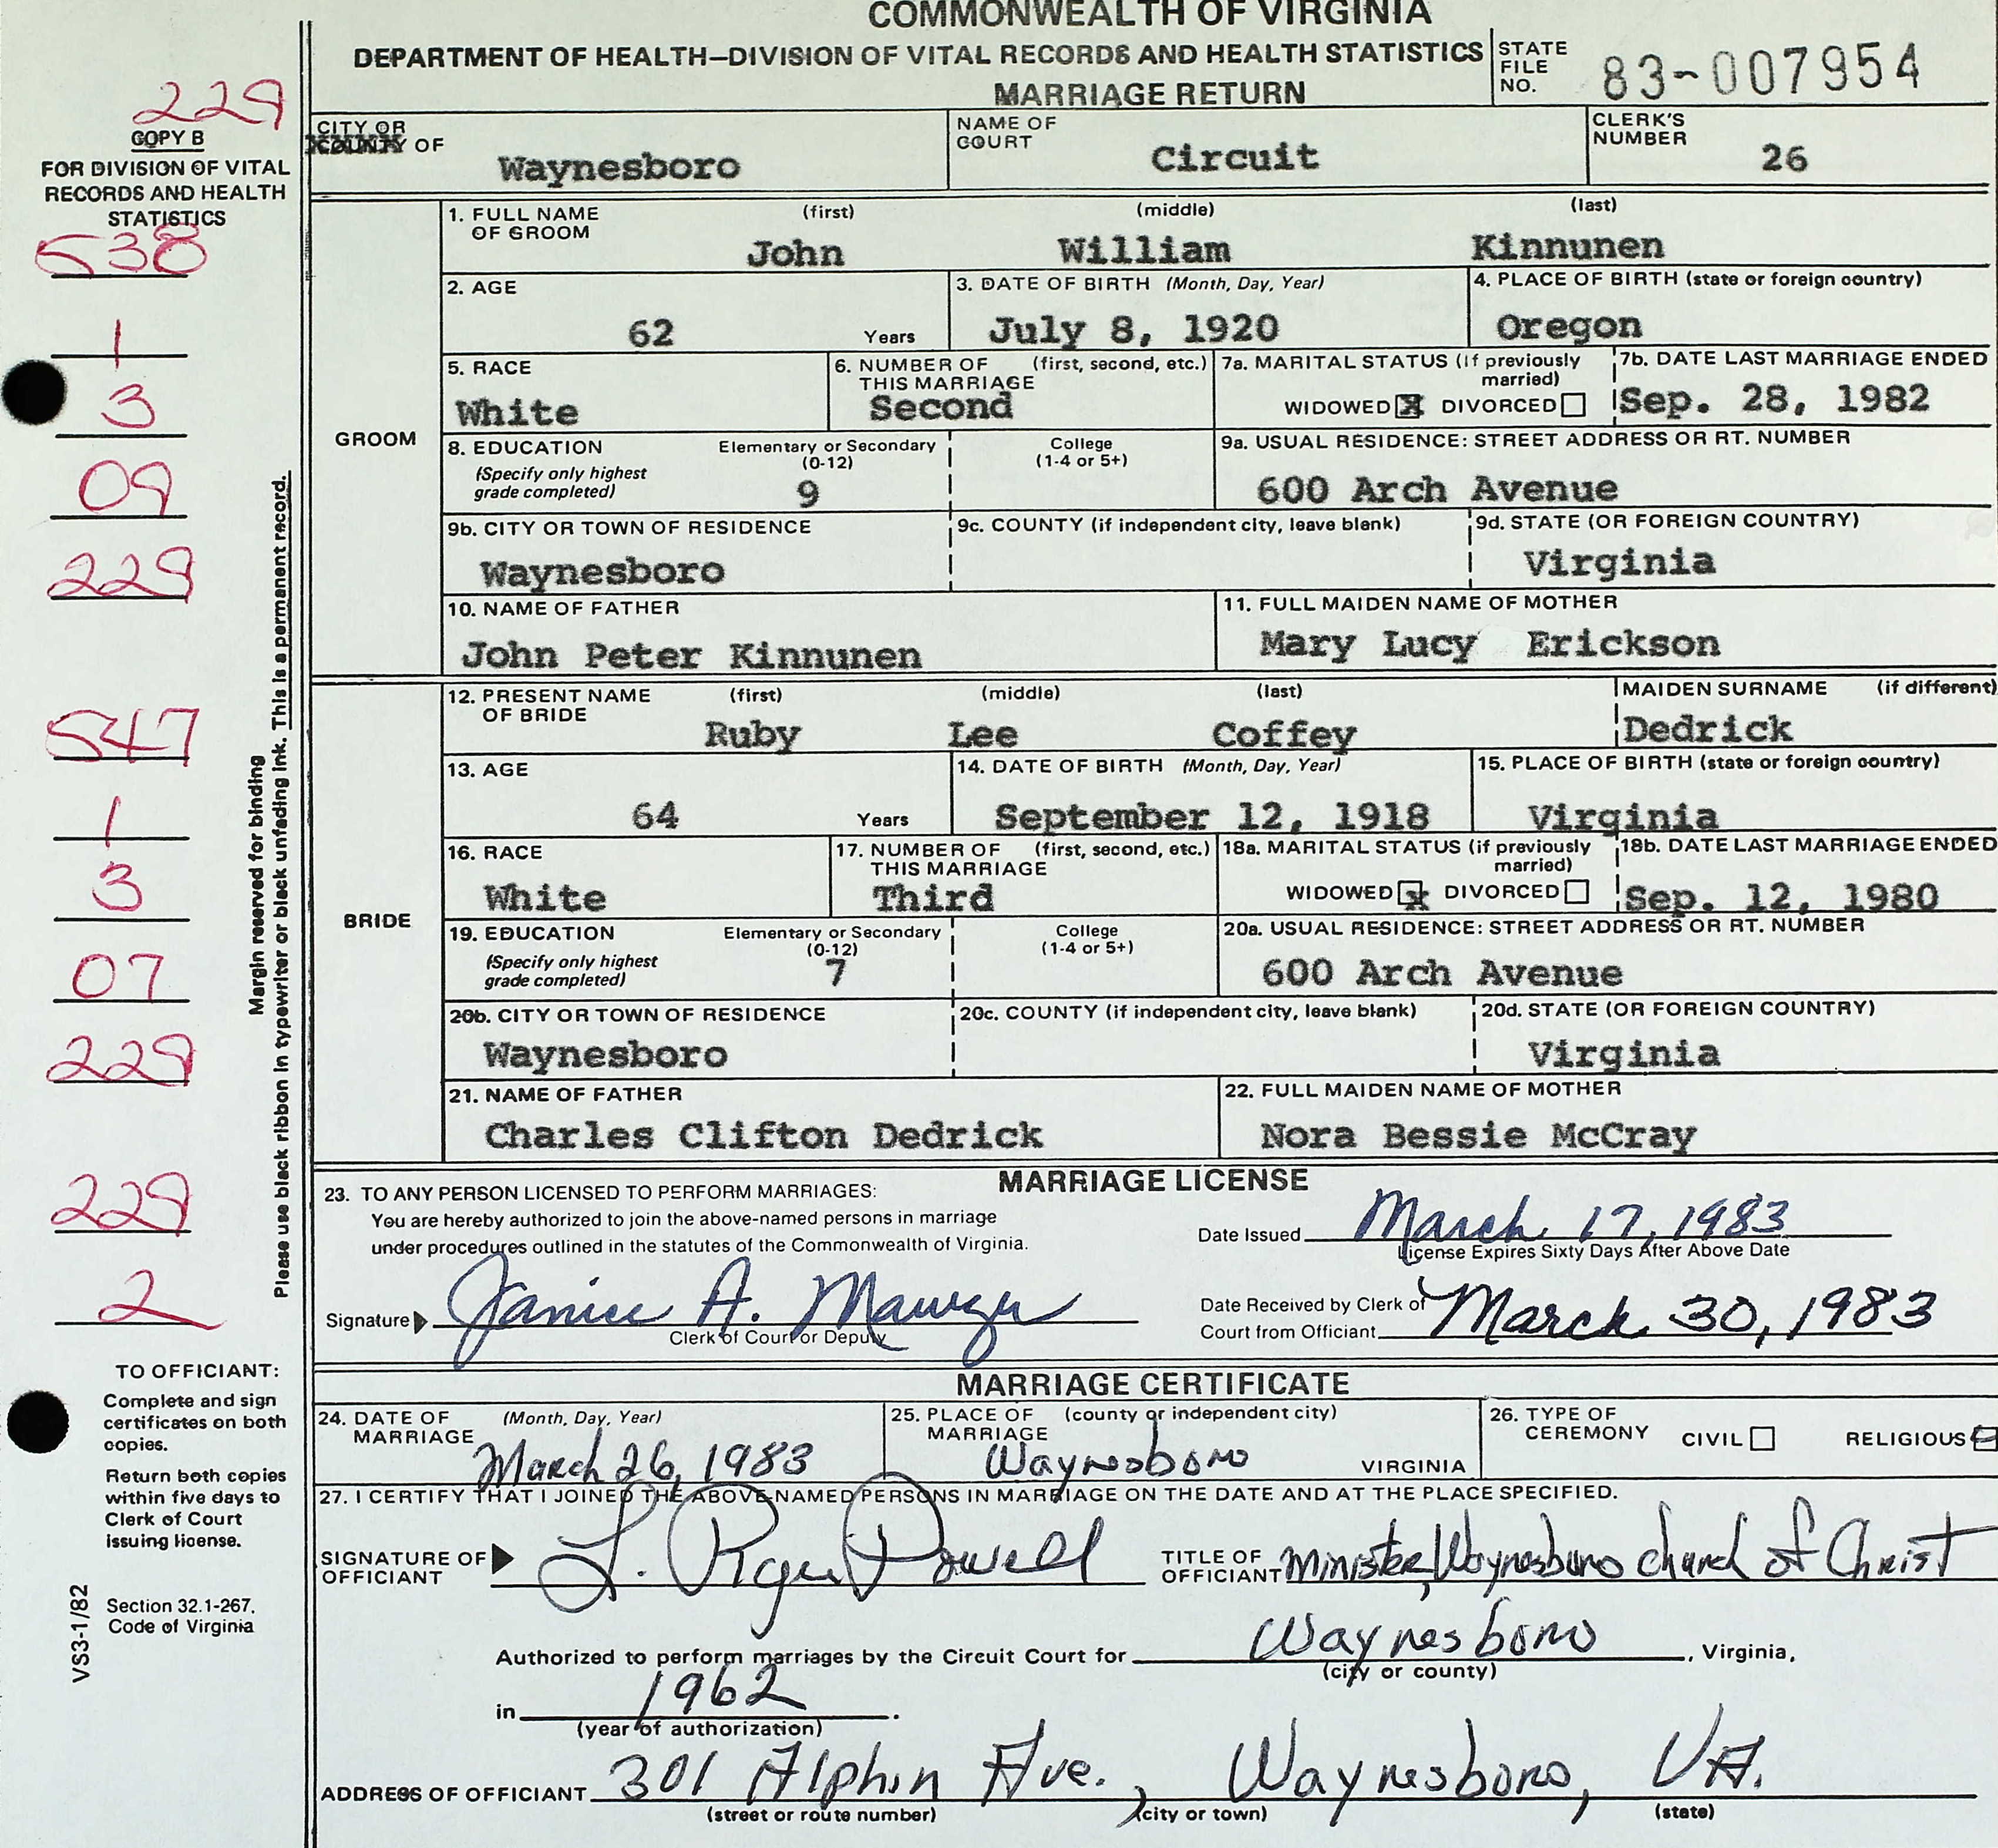 COMMONWEALTH OF VIRGINIA
DEPARTMENT OF HEALTH—DIVISION OF VITAL RECORDS AND HEALTH STATISTICS
MARRIAGE RETURN
STATE FILE NO. 83-007954
229
COPY B
FOR DIVISION OF VITAL
RECORDS AND HEALTH
STATISTICS
538
1
3
09
229
547
1
3
07
229
229
2
Margin reserved for binding
Please use black ribbon in typewriter or black unfading ink. This is a permanent record.
CITY OR COUNTY OF Waynesboro
NAME OF COURT Circuit
CLERK'S NUMBER 26
GROOM
1. FULL NAME OF GROOM (first) (middle) (last)
John William Kinnunen
2. AGE 62 Years
3. DATE OF BIRTH (Month, Day, Year) July 8, 1920
4. PLACE OF BIRTH (state or foreign country) Oregon
5. RACE White
6. NUMBER OF THIS MARRIAGE (first, second, etc.) Second
7a. MARITAL STATUS (if previously married)
WIDOWED X DIVORCED
7b. DATE LAST MARRIAGE ENDED Sep. 28, 1982
8. EDUCATION (Specify only highest grade completed)
Elementary or Secondary (0-12) 9
College (1-4 or 5+)
9a. USUAL RESIDENCE: STREET ADDRESS OR RT. NUMBER 600 Arch Avenue
9b. CITY OR TOWN OF RESIDENCE Waynesboro
9c. COUNTY (if independent city, leave blank)
9d. STATE (OR FOREIGN COUNTRY) Virginia
10. NAME OF FATHER John Peter Kinnunen
11. FULL MAIDEN NAME OF MOTHER Mary Lucy Erickson
BRIDE
12. PRESENT NAME OF BRIDE (first) (middle) (last)
Ruby Lee Coffey
MAIDEN SURNAME (if different) Dedrick
13. AGE 64 Years
14. DATE OF BIRTH (Month, Day, Year) September 12, 1918
15. PLACE OF BIRTH (state or foreign country) Virginia
16. RACE White
17. NUMBER OF THIS MARRIAGE (first, second, etc.) Third
18a. MARITAL STATUS (if previously married)
WIDOWED x DIVORCED
18b. DATE LAST MARRIAGE ENDED Sep. 12, 1980
19. EDUCATION (Specify only highest grade completed)
Elementary or Secondary (0-12) 7
College (1-4 or 5+)
20a. USUAL RESIDENCE: STREET ADDRESS OR RT. NUMBER 600 Arch Avenue
20b. CITY OR TOWN OF RESIDENCE Waynesboro
20c. COUNTY (if independent city, leave blank)
20d. STATE (OR FOREIGN COUNTRY) Virginia
21. NAME OF FATHER Charles Clifton Dedrick
22. FULL MAIDEN NAME OF MOTHER Nora Bessie McCray
MARRIAGE LICENSE
23. TO ANY PERSON LICENSED TO PERFORM MARRIAGES:
You are hereby authorized to join the above-named persons in marriage
under procedures outlined in the statutes of the Commonwealth of Virginia.
Date Issued March 17, 1983
License Expires Sixty Days After Above Date
Signature Janice A.
Clerk of Court or Deputy
Date Received by Clerk of Court from Officiant March 30, 1983
TO OFFICIANT:
Complete and sign
certificates on both
copies.
Return both copies
within five days to
Clerk of Court
issuing license.
Section 32.1-267,
Code of Virginia
VS3-1/82
MARRIAGE CERTIFICATE
24. DATE OF MARRIAGE (Month, Day, Year) March 26, 1983
25. PLACE OF MARRIAGE (county or independent city) Waynesboro VIRGINIA
26. TYPE OF CEREMONY CIVIL RELIGIOUS
27. I CERTIFY THAT I JOINED THE ABOVE-NAMED PERSONS IN MARRIAGE ON THE DATE AND AT THE PLACE SPECIFIED.
SIGNATURE OF OFFICIANT L. Roger Powell
TITLE OF OFFICIANT Minister, Waynesboro church of Christ
Authorized to perform marriages by the Circuit Court for Waynesboro, Virginia,
(city or county)
in 1962.
(year of authorization)
ADDRESS OF OFFICIANT 301 Alphin Ave., Waynesboro, VA.
(street or route number) (city or town) (state)